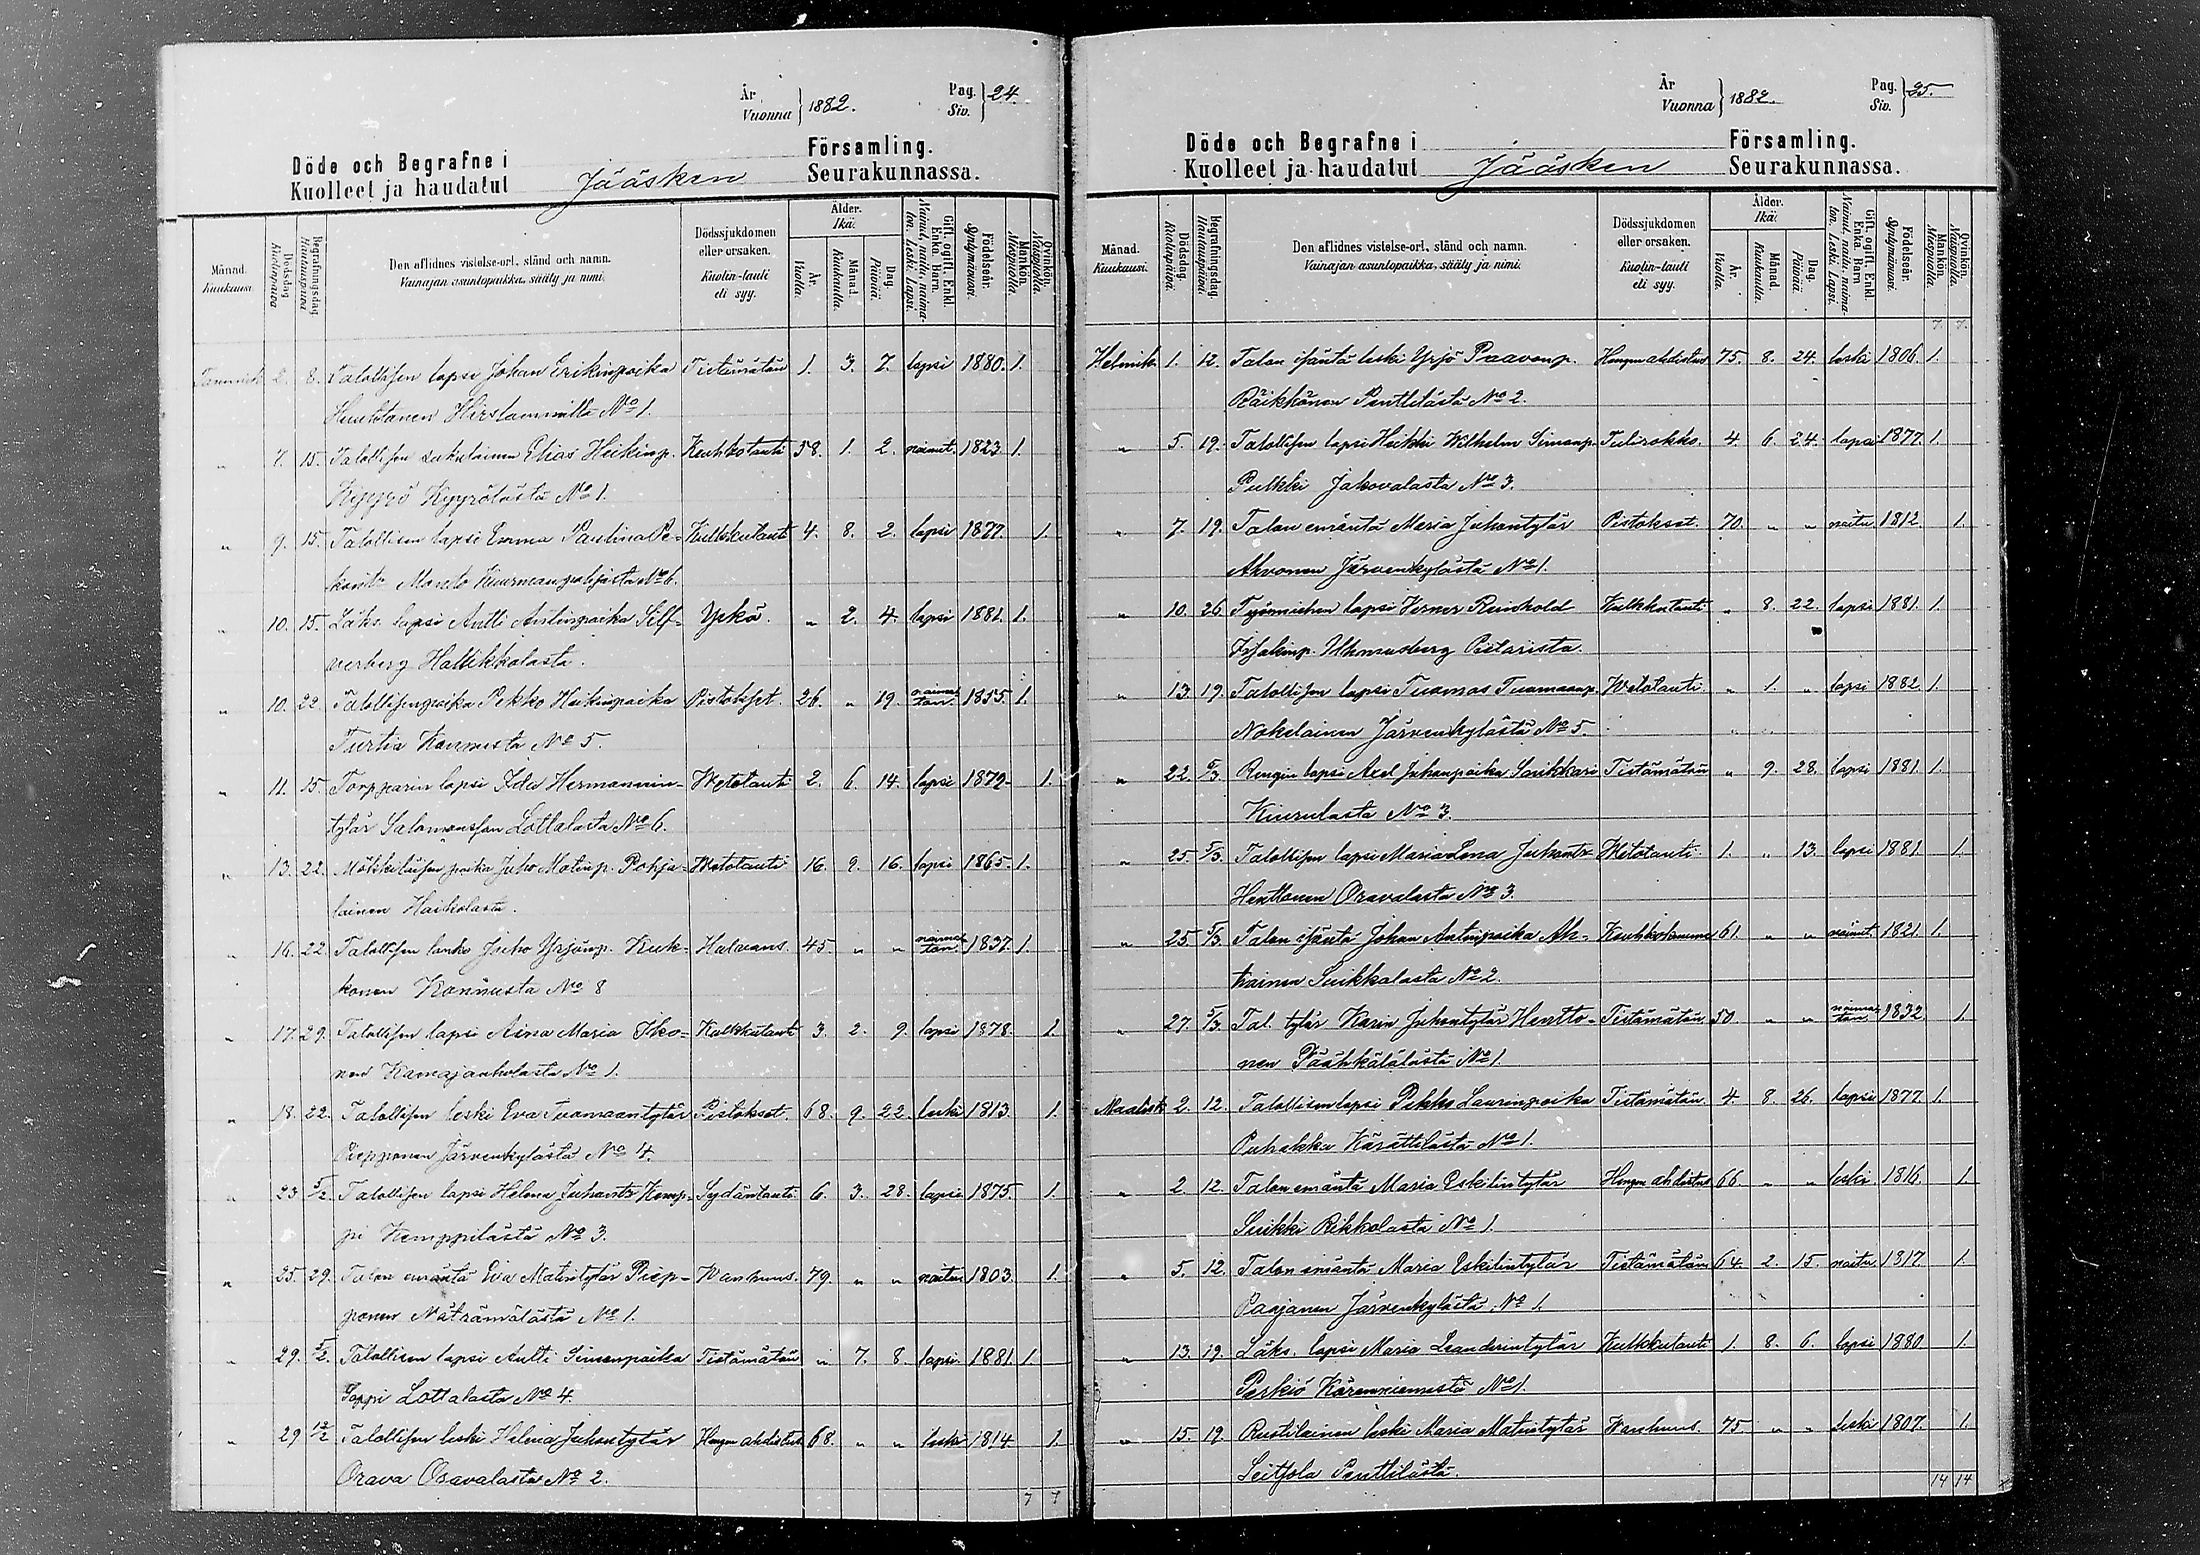 År
Vuonna } 1882.
Pag.
Siv. } 24.
Döde och Begrafne i Församling.
Kuolleet ja haudatut Jääsken Seurakunnassa.
Månad. Kuukausi. Dödsdag Kuolinpäivä Begrafningsdag Hautauspäivä Den aflidnes vistelse-ort, stånd och namn. Vainajan asuntopaikka, sääty ja nimi. Dödssjukdomen eller orsaken. Kuolin-tauti eli syy. Ålder. Ikä: År. Vuotta. Månad. Kuukautta. Dag. Päiviä. Gift, ogift, Enkl. Enka. Barn. Nainut, naitu, naimaton. Leski. Lapsi. Födelseår. Syntymävuosi. Mankön. Miespuolta. Qvinkön. Naispuolta.
Tammik. 2. 8. Talollisen lapsi Johan Erikinpoika Tietämätön 1. 3. 7. lapsi 1880. 1.
Huuhtanen Hirslammilta No 1.
" 7. 15. Talollisen sukulainen Elias Heikinp. Keuhkotauti 58. 1. 2. nainut. 1823. 1.
Kyyrö Kyyrölästä No 1.
" 9. 15. Talollisen lapsi Emma Paulina Pe- Kulkkutauti 4. 8. 2. lapsi 1877. 1.
Kuurmanpohjasta No 6.
" 10. 15. Läks. lapsi Antti Antinpoika Silf- Yskä. " 2. 4. lapsi 1881. 1.
verberg Hallikkolasta.
" 10. 22. Talollisenpoika Pekko Heikinpoika Pistokset. 26. " 19. naimaton. 1855. 1.
Turtia Kannusta No 5.
" 11. 15. Torpparin lapsi Ida Hermannin- Wetotauti 2. 6. 14. lapsi 1879. 1.
tytär Salomonsson Lottalasta No 6.
" 13. 22. Mökkiläisen poika Juho Matinp. Pohja- Wetotauti 16. 9. 16. lapsi 1865. 1.
lainen Haikolasta.
" 16. 22. Talollisen lanko Juho Yrjönp. Kuk- Halvaus. 45. " " naimaton 1837. 1.
konen Kannusta No 8
" 17. 29. Talollisen lapsi Aina Maria Iko- Kulkkutauti 3. 2. 9. lapsi 1878. 1.
nen Kamajanholasta No 1.
" 18. 22. Talollisen leski Eva Tuomaantytär Pistokset. 68. 9. 22. leski 1813. 1.
Piepponen Järvenkylästä No 4.
" 23 5/2. Talollisen lapsi Helena Juhantr Kemp- Sydäntauti. 6. 3. 28. lapsi 1875. 1.
pi Kemppilästä No 3.
" 25. 29. Talon emäntä Eva Matintytär Piep- Wanhuus. 79. " " naitu 1803. 1.
ponen Näträmälästä No 1.
" 29. 5/2. Talollisen lapsi Antti Simonpoika Tietämätön " 7. 8. lapsi. 1881. 1
Seppi Lottalasta No 4.
" 29 12/2 Talollisen leski Helena Juhontytär Hengen ahdistus 68. " " leski 1814 1.
Orava Oravalasta No 2.
7 7
År
Vuonna } 1882.
Pag.
Siv. } 25.
Döde och Begrafne i Församling.
Kuolleet ja haudatut Jääsken Seurakunnassa.
Månad. Kuukausi. Dödsdag. Kuolinpäivä. Begrafningsdag. Hautauspäivä. Den aflidnes vistelse-ort, stånd och namn. Vainajan asuntopaikka, sääty ja nimi. Dödssjukdomen eller orsaken. Kuolin-tauti eli syy. Ålder. Ikä: År. Vuotta. Månad. Kuukautta. Dag. Päiviä. Gift, ogift, Enkl. Enka. Barn Nainut, naitu, naimaton. Leski. Lapsi. Födelseår. Syntymävuosi. Mankön. Miespuolta. Qvinkön. Naispuolta.
7. 7.
Helmik. 1. 12. Talon isäntä leski Yrjö Paavonp. Hengen ahdistus 75. 8. 24. leski 1806. 1.
Räikkönen Penttilästä No 2.
" 5. 19. Talollisen lapsi Heikki Wilhelm Simonp. Tulirokko. 4. 6. 24. lapsi 1877. 1.
Pulkki Jakovalasta No 3.
" 7. 19. Talon emäntä Maria Juhontytär Pistokset. 70. " " naitu 1812. 1.
Ahvonen Järvenkylästä No 1.
" 10. 26 Työmiehen lapsi Verner Reinhold Kulkkutauti " 8. 22. lapsi 1881. 1.
Pietarista.
" 13 19. Talollisen lapsi Tuomas Tuomaanp. Wetotauti " 1. " lapsi 1882 1.
Nokelainen Järvenkylästä No 5.
" 22. 5/3. Rengin lapsi Axel Juhanpoika Suikkari Tietämätön " 9. 28. lapsi 1881 1.
Kiurulasta No 3.
" 25. 5/3. Talollisen lapsi Maria Lena Juhantr Wetotauti. 1. " 13. lapsi 1881 1.
Henttonen Oravalasta No 3.
" 25. 5/3. Talon isäntä Johan Antinpoika Ah- 61. " " nainut. 1821. 1.
kainen Suikkalasta No 2.
" 27. 5/3. Tal. tytär Karin Juhontytär Hentto- Tietämätön 50. " " naimaton 1832. 1.
nen Pääskälälästä No 1.
Maalisk 2. 12. Talollisen lapsi Pekko Laurinpoika Tietämätön 4. 8. 26. lapsi 1877. 1.
Puhakka Kärättilästä No 1.
" 2 12. Talon emäntä Maria Eskilintytär Hengen ahdistus 66. " " leski 1816. 1.
Suikki Rikkolasta No 1.
" 5. 12. Talon emäntä Maria Eskilintytär Tietämätön 64. 2. 15. naitu 1817. 1.
Paajanen Järvenkylästä No 1.
" 13. 19. Läks. lapsi Maria Leanderintytär Kulkkutauti 1. 8. 6. lapsi 1880. 1.
Perkiö Kärenniemestä No 1.
" 15. 19. Ruotilainen leski Maria Matintytär Wanhuus. 75 " " leski 1807. 1.
Seitsola Penttilästä.
14 14